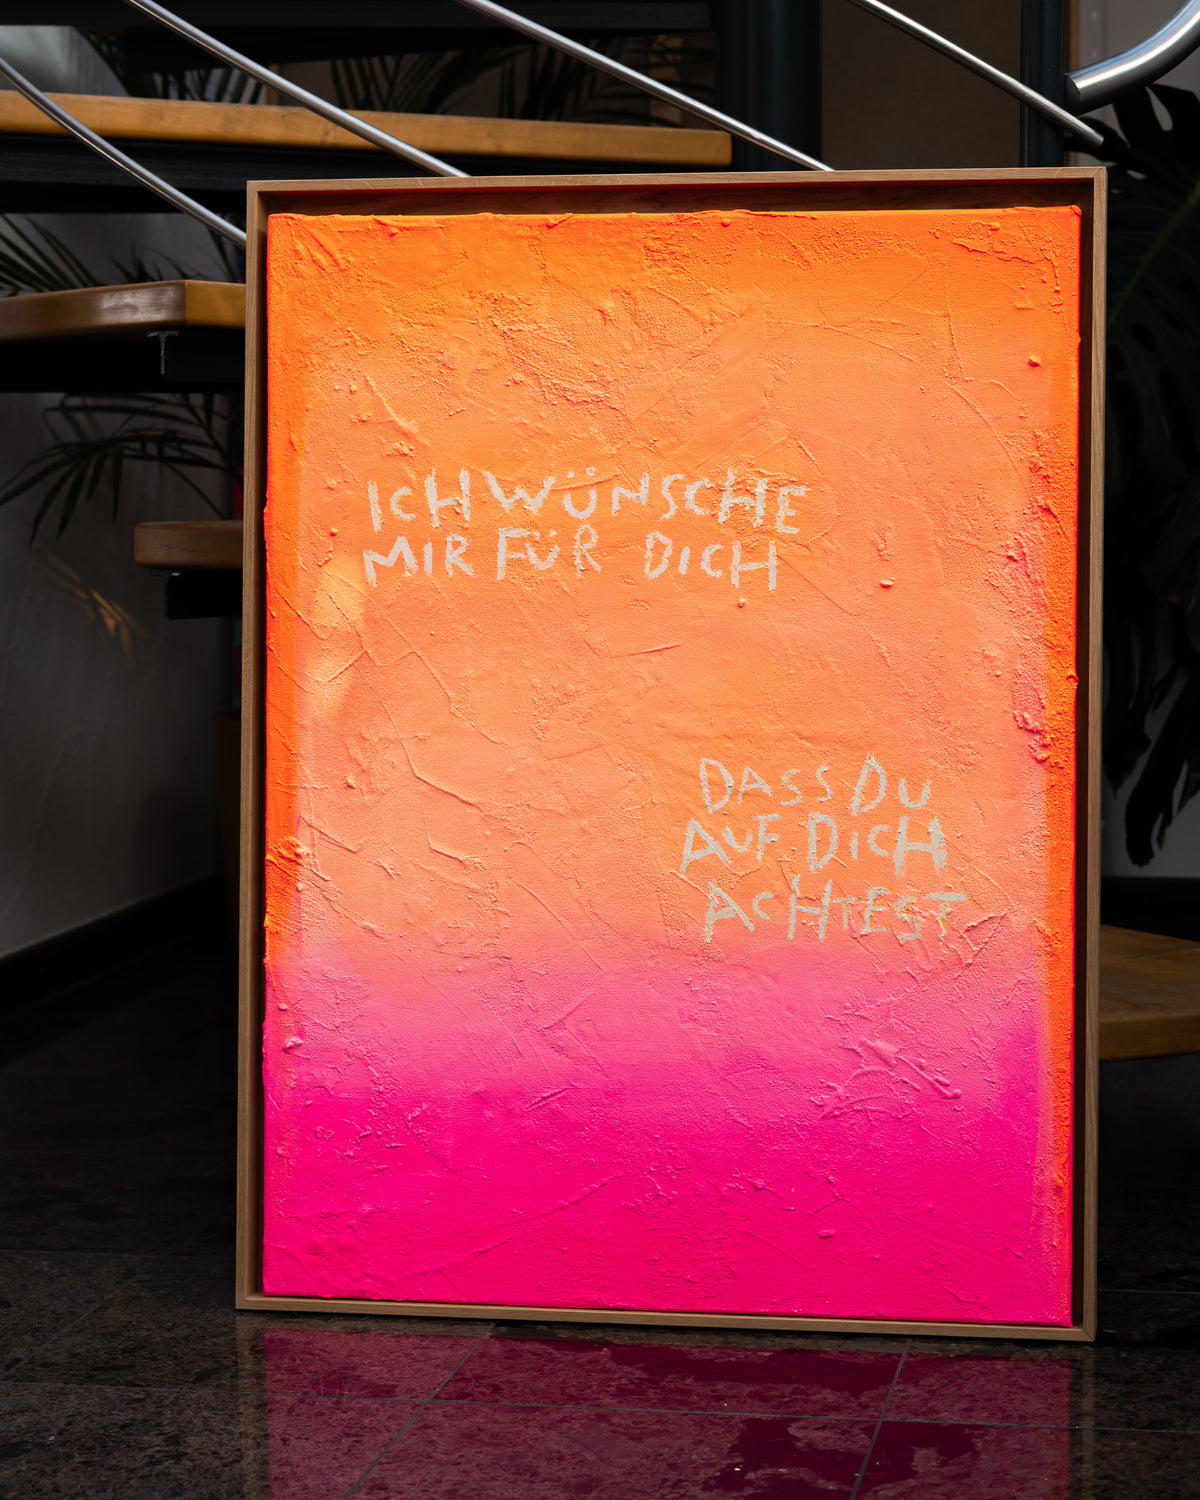 ICH WÜNSCHE
MIR FÜR DICH
DASS DU
AUF DICH
ACHTEST